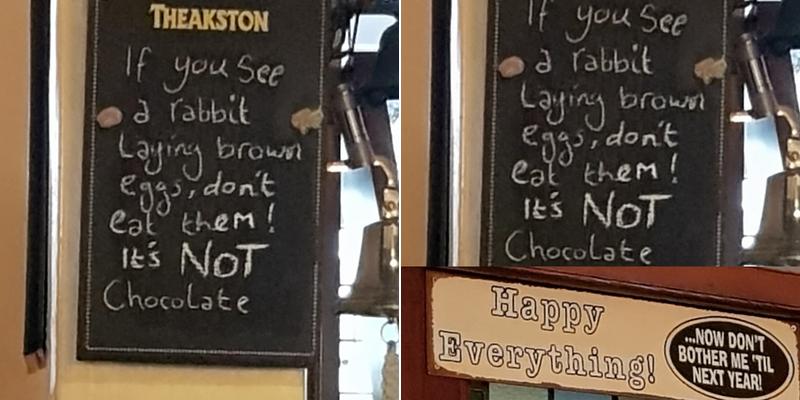 THEAKSTON
If you See
a rabbit
Laying brown
eggs, don't
eat them!
It's NOT
Chocolate
If you See
a rabbit
Laying brown
eggs, don't
eat them!
It's NOT
Chocolate
Happy
Everything!
...NOW DON'T
BOTHER ME 'TIL
NEXT YEAR!